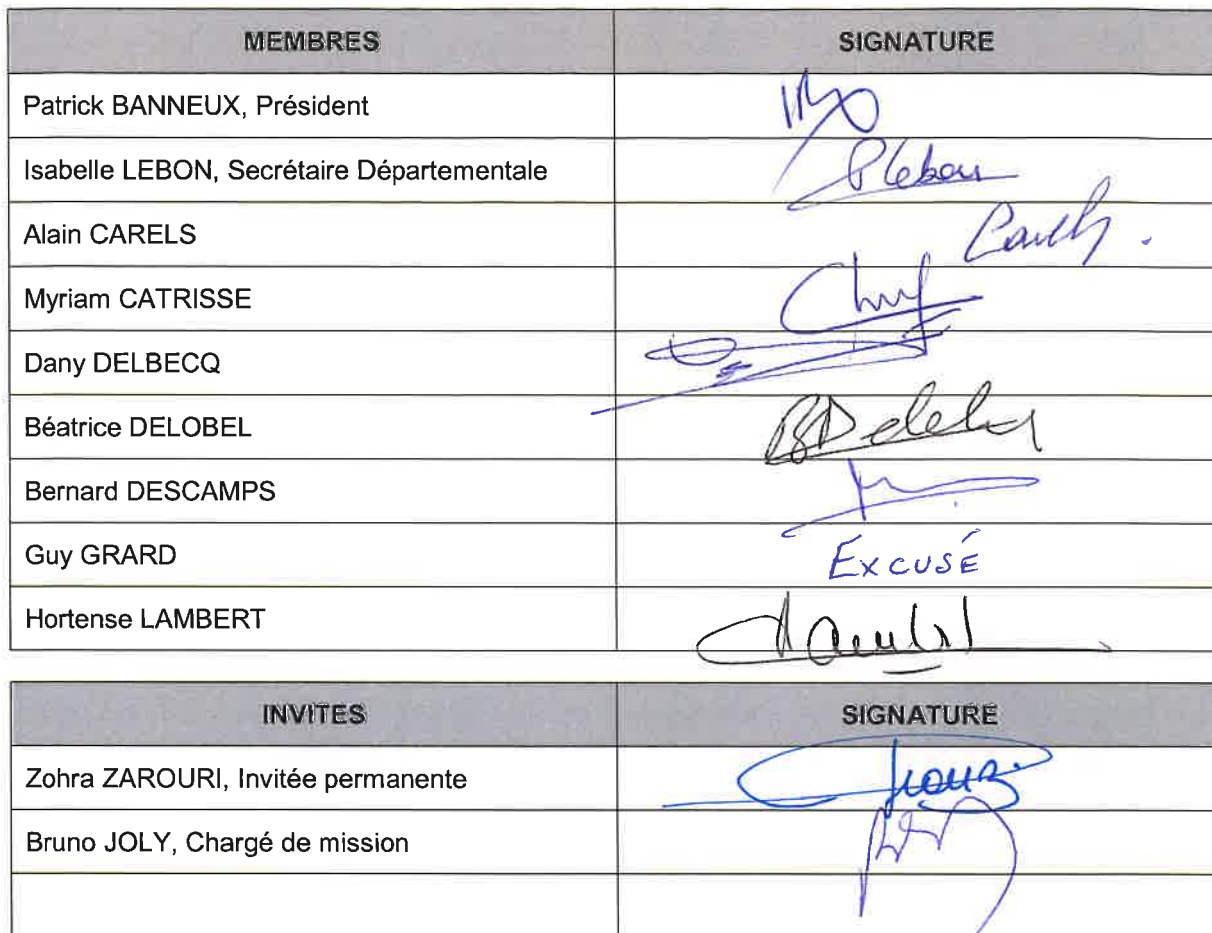 MEMBRES SIGNATURE
Patrick BANNEUX, Président
Isabelle LEBON, Secrétaire Départementale
Alain CARELS
Myriam CATRISSE
Dany DELBECQ
Béatrice DELOBEL
Bernard DESCAMPS
Guy GRARD EXCUSÉ
Hortense LAMBERT
INVITES SIGNATURE
Zohra ZAROURI, Invitée permanente
Bruno JOLY, Chargé de mission